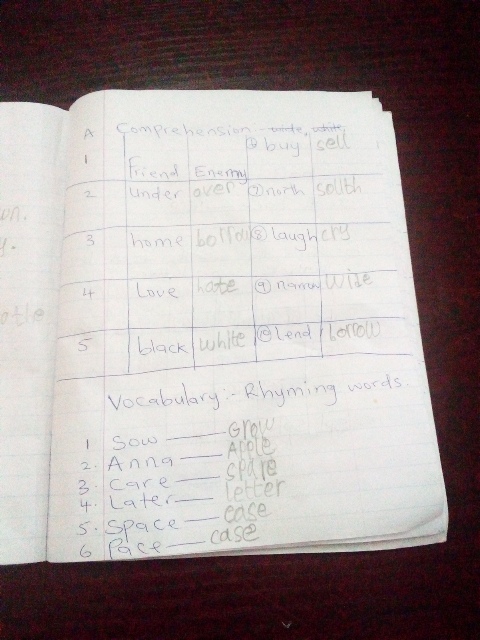 A Comprehension white, white
1 Friend Enemy 6 buy sell
2 under over 7 north south
3 home borrow 8 laugh cry
4 Love hate 9 narrow wise
5 black white 10 Lend borrow
Vocabulary:- Rhyming words.
1 Sow — Grow
2. Anna — Apple
3. Care — spare
4. Later — letter
5. Space — case
6 Pace — case
on.
y.